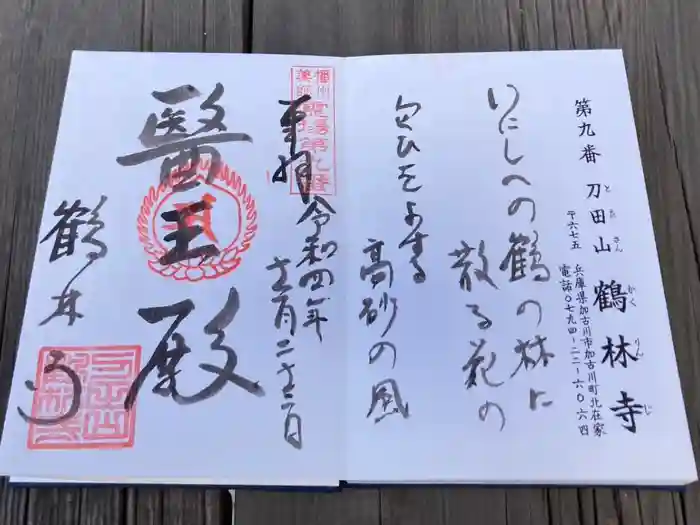 第九番 刀田山 鶴林寺
とた さん かく りん じ
〒六七五 兵庫県加古川市加古川町北在家
電話〇七九四-二二-六〇六四
いにしへの鶴の林に
散る花の
匂ひをよする
高砂の風
播州
薬師
霊場第九番
奉拝
令和四年
月
日
醫王殿
鶴林寺